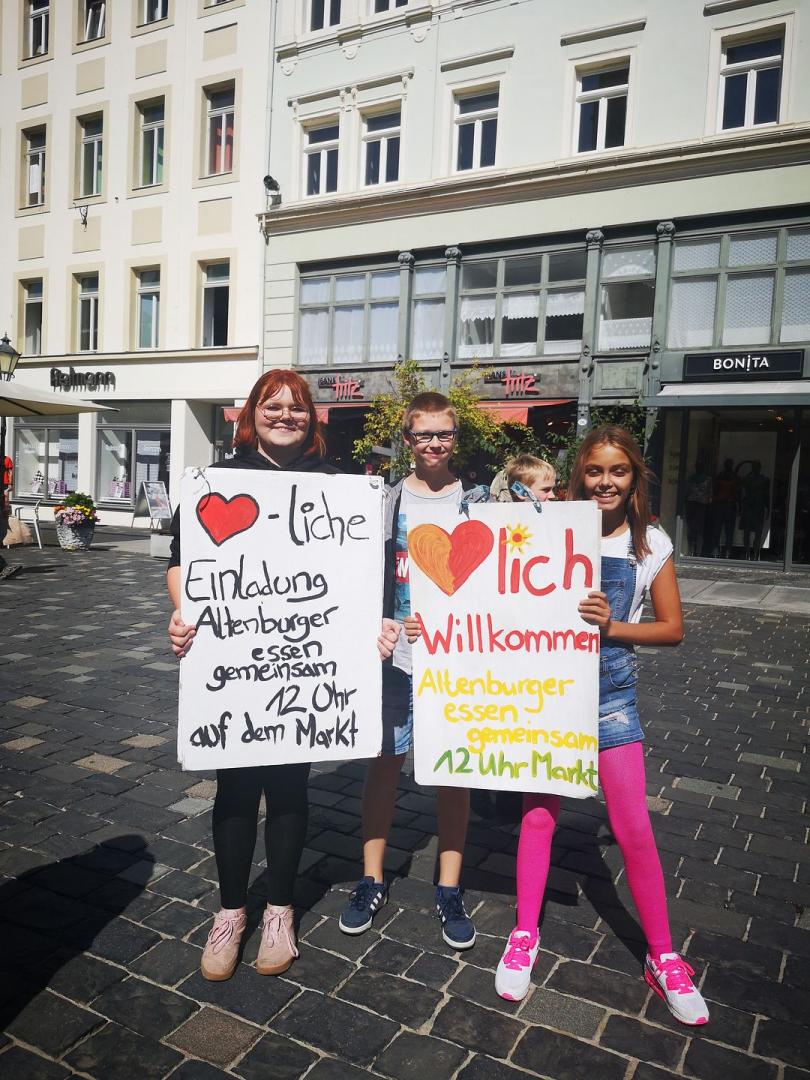 Fielmann
Fritz
Fritz
BONiTA
❤-liche
Einladung
Altenburger
essen
gemeinsam
12 Uhr
auf dem Markt
❤lich
Willkommen
Altenburger
essen
gemeinsam
12 Uhr Markt